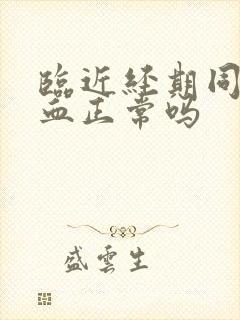 臨近經期同
血正常嗎
盛雲生